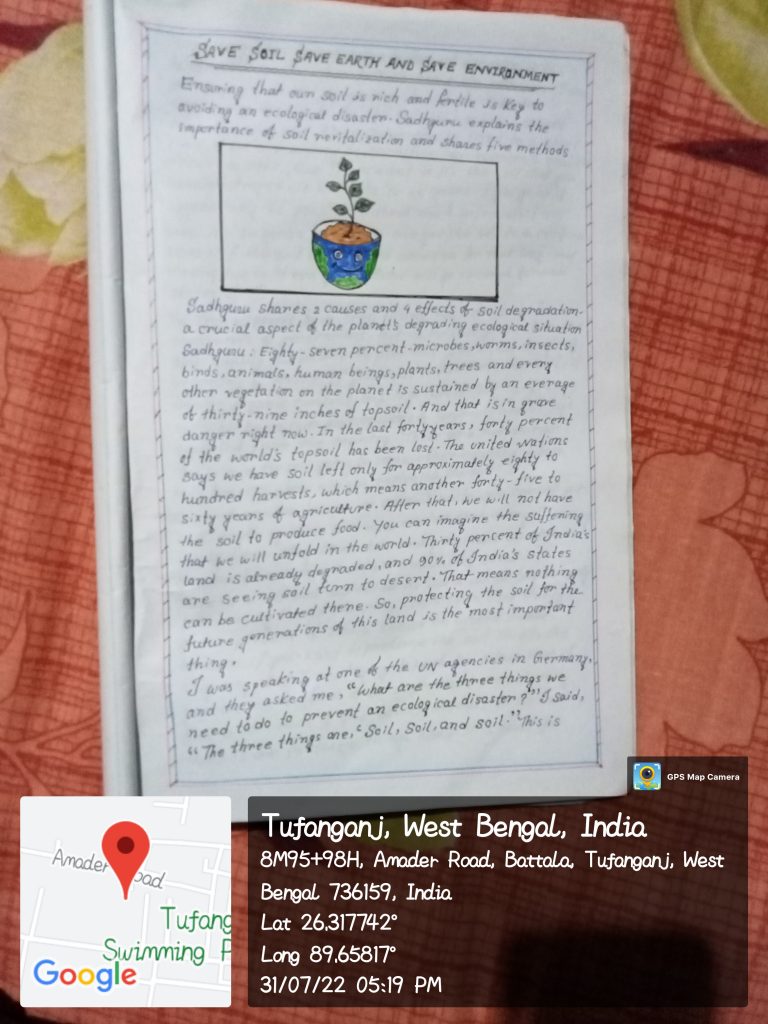 SAVE SOIL SAVE EARTH AND SAVE ENVIRONMENT
Ensuring that our soil is rich and fertile is key to
avoiding an ecological disaster. Sadhguru explains the
importance of soil revitalization and shares five methods
Sadhguru shares 2 causes and 4 effects of soil degradation-
a crucial aspect of the planet's degrading ecological situation
Sadhguru : Eighty-seven percent-microbes, worms, insects,
birds, animals, human beings, plants, trees and every
other vegetation on the planet is sustained by an average
of thirty-nine inches of topsoil. And that is in grave
danger right now. In the last forty years, forty percent
of the world's topsoil has been lost. The united Nations
says we have soil left only for approximately eighty to
hundred harvests, which means another forty-five to
sixty years of agriculture. After that, we will not have
the soil to produce food. You can imagine the suffering
that we will unfold in the world. Thirty percent of India's
land is already degraded, and 90% of India's states
are seeing soil turn to desert. That means nothing
can be cultivated there. So, protecting the soil for the
future generations of this land is the most important
thing.
I was speaking at one of the UN agencies in Germany,
and they asked me, "What are the three things we
need to do to prevent an ecological disaster?" I said,
"The three things are, 'Soil, Soil, and soil." This is
GPS Map Camera
Tufanganj, West Bengal, India
8M95+98H, Amader Road, Battala, Tufanganj, West
Bengal 736159, India
Lat 26.317742°
Long 89.65817°
31/07/22 05:19 PM
Amader Road
Tufang
Swimming P
Google